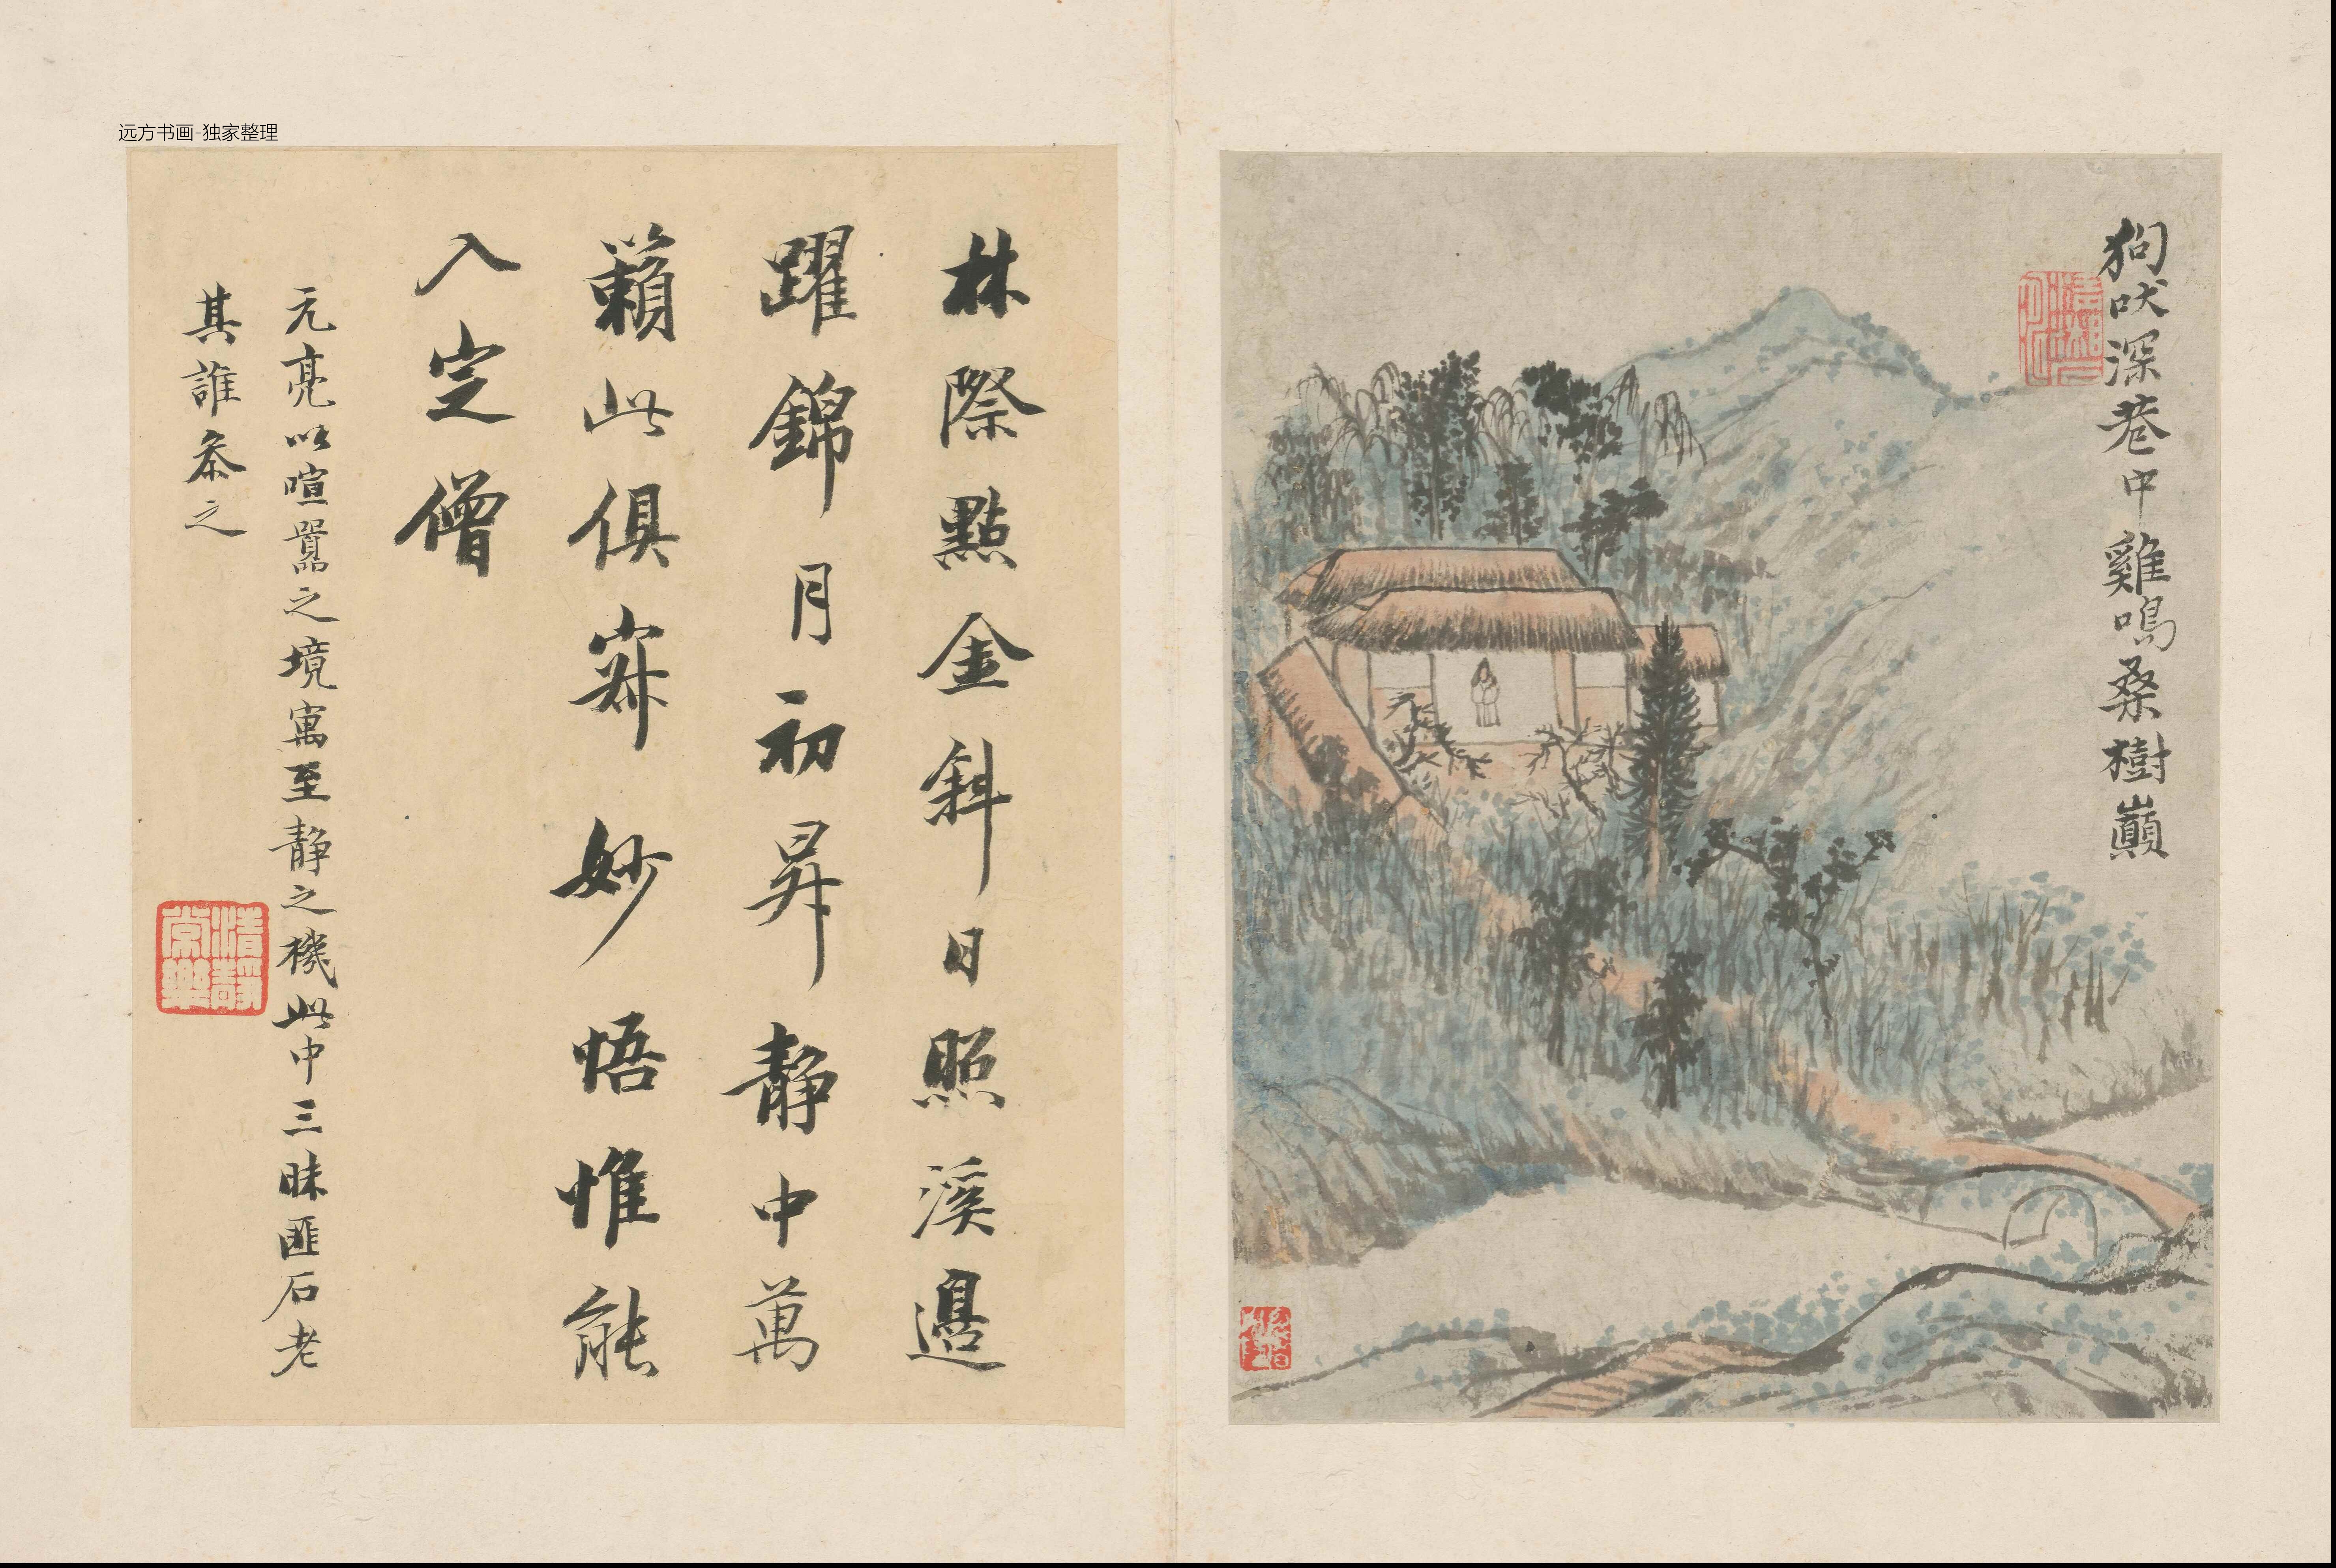 远方书画-独家整理
狗吠深巷中雞鳴桑樹巔
林際點金斜日照溪邊
躍錦月初昇靜中萬
籟此俱寂妙悟惟能
入定僧
元亮以喧囂之境寓至靜之機此中三昧匪石老
其誰參之
清靜
常樂